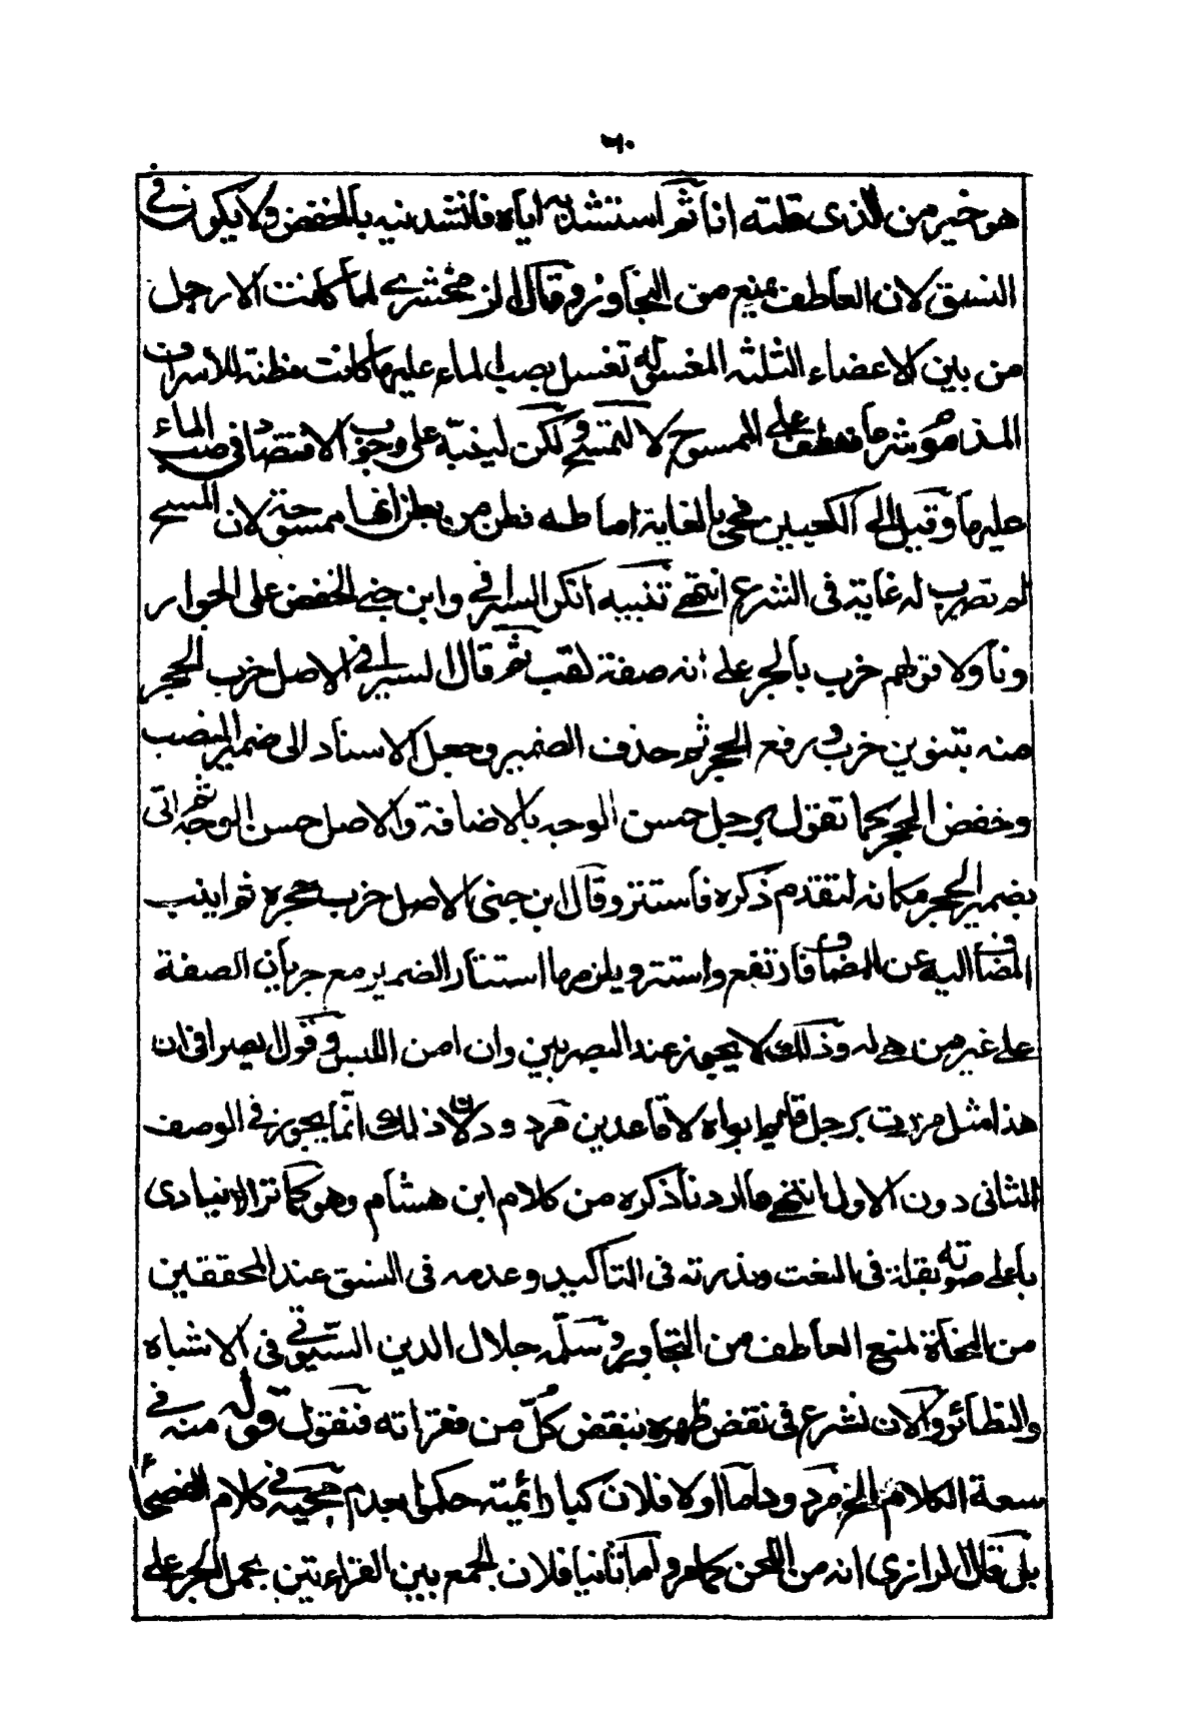 ٦٠
هو خير من الذى قلته انا ثم استنشدته اياه فانشدنيه بالخفض ولا يكون فى
النسق لان العاطف يمنع من التجاور وقال الزمخشرى لما كانت الارجل
من بين الاعضاء الثلثة المغسولة تغسل بصب الماء عليها كانت مظنة للاسراف
المذموم شرعا فعطف على الممسوح لا لتمسح ولكن لينبه على وجوب الاقتصاد فى صب الماء
عليها وقيل الى الكعبين فجئ بالغاية اماطة لظن من يظن انها ممسوحة لان المسح
لم تضرب له غاية فى الشرع انتهى تنبيه انكر السيرافى وابن جنى الخفض على الجوار
وتأولا قولهم خرب بالجر على انه صفة لضب ثم قال السيرافى الاصل خرب الجحر
منه بتنوين خرب ورفع الجحر ثم حذف الضمير وجعل الاسناد الى ضمير الضب
وخفض الجحر كما تقول برجل حسن الوجه بالاضافة والاصل حسن الوجه ثم اتى
بضمير الجحر مكانه لتقدم ذكره فاستتر وقال ابن جنى الاصل خرب جحره ثم اينب
المضاف اليه عن المضاف فارتفع واستتر ويلزمها استتار الضمير مع جريان الصفة
على غير من هى له وذلك لا يجوز عند البصريين وان امن اللبس وقول السيرافى ان
هذا مثل مررت برجل قائم ابواه لا قاعدين مردود لان ذلك انّما يجوز فى الوصف
الثانى دون الاول انتهى ما اردنا ذكره من كلام ابن هشام وهو كما تراه ينادى
باعلى صوته بقلته فى النعت وندرته فى التأكيد وعدمه فى النسق عند المحققين
من النحاة لمنع العاطف من التجاور وسلّمه جلال الدين السّيوطى فى الاشباه
والنظائر والان نشرع فى نقض ظهره بنقض كلّ من فقراته فنقول قوله منه فى
سعة الكلام الخ مردود اما اولا فلان كبار ائمته حكموا بعدم مجيئه فى كلام الفصحاء
بل قال الرازى انه من اللحن كما مر واما ثانيا فلان الجمع بين القراءتين بحمل الجر على